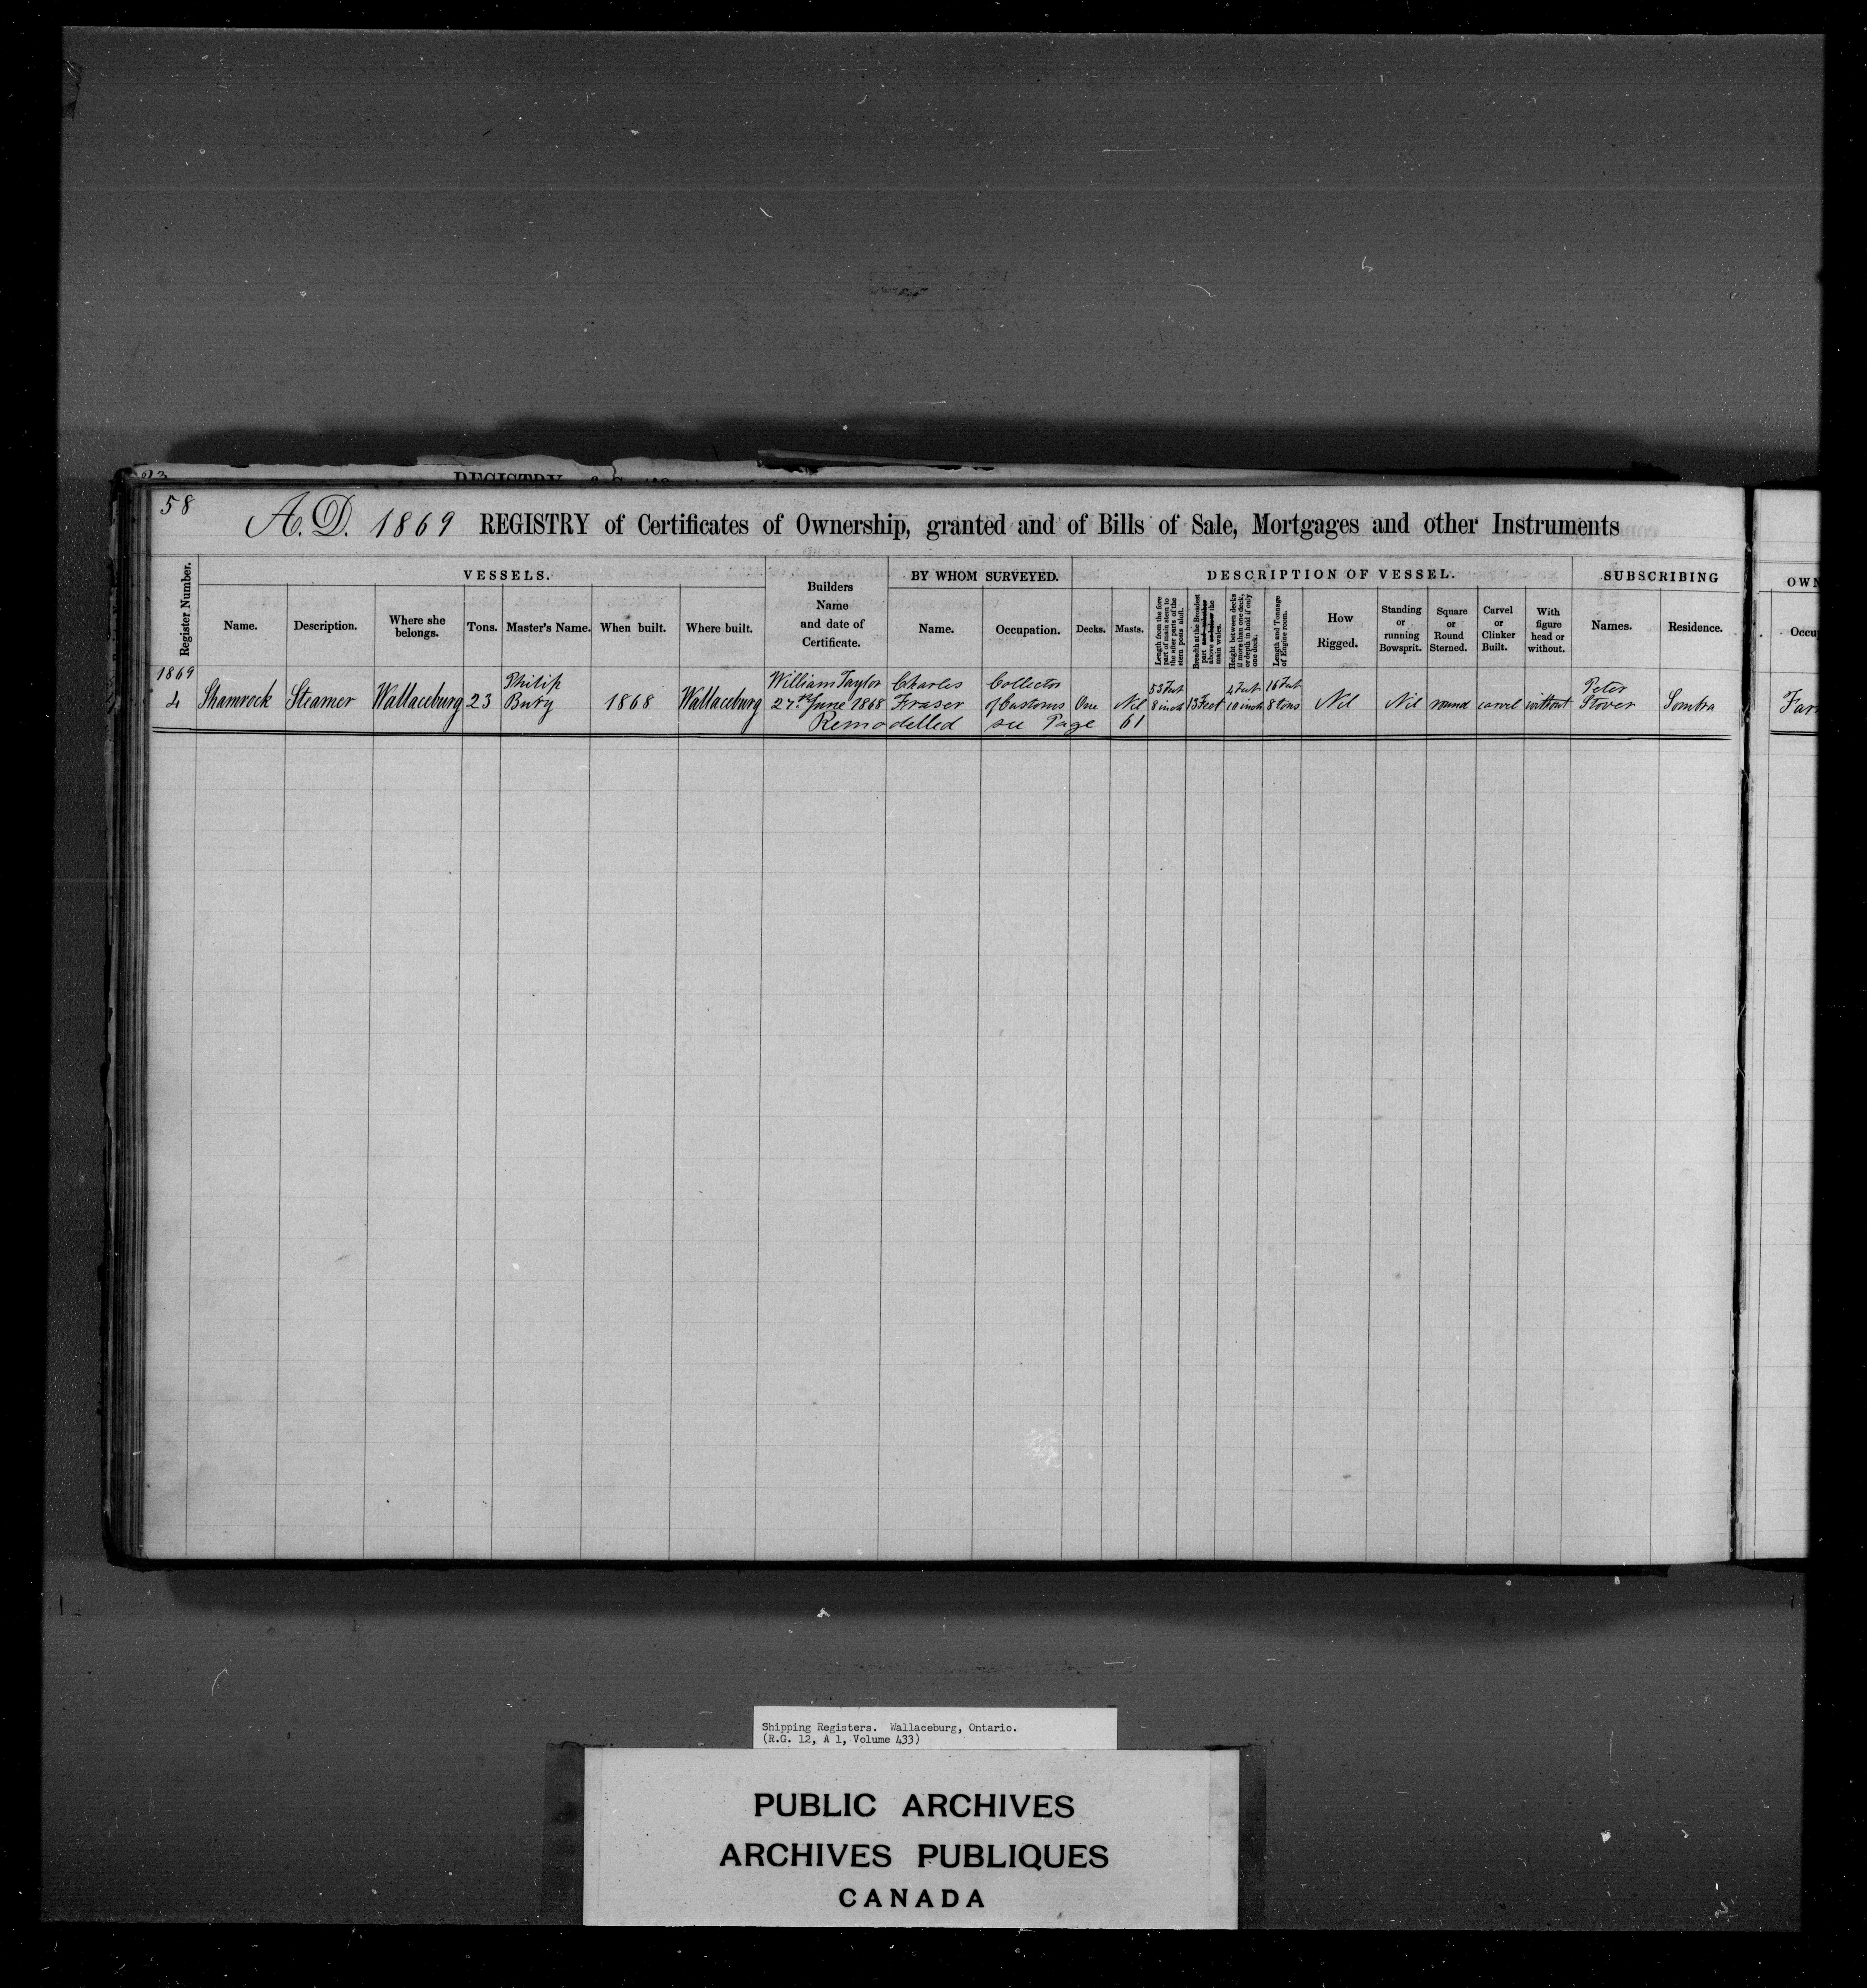 58
A.D. 1869 REGISTRY of Certificates of Ownership, granted and of Bills of Sale, Mortgages and other Instruments
Register Number.
VESSELS.
Name.
Description.
Where she belongs.
Tons.
Master's Name.
When built.
Where built.
Builders Name and date of Certificate.
BY WHOM SURVEYED.
Name.
Occupation.
DESCRIPTION OF VESSEL.
Decks.
Masts.
Length from the fore part of main stern to the after parts of the stern posts aloft.
Breadth at the Broadest part above the main wales.
Height between decks if more than one deck, or depth in hold if only one deck.
Length and Tonnage of Engine room.
How Rigged.
Standing or running Bowsprit.
Square or Round Sterned.
Carvel or Clinker Built.
With figure head or without.
SUBSCRIBING
Names.
Residence.
OWN
Occu
1869
4
Shamrock
Steamer
Wallaceburg
23
Philip Bury
1868
Wallaceburg
William Taylor
27th June 1868
Charles Fraser
Collector of Customs
One
Nil
53 Feet 8 inch
13 Feet
4 Feet 10 inch
16 Feet 8 tons
Nil
Nil
round
carvel
without
Peter Stover
Sombra
Far
Remodelled see Page 61
Shipping Registers. Wallaceburg, Ontario.
(R.G. 12, A 1, Volume 433)
PUBLIC ARCHIVES
ARCHIVES PUBLIQUES
CANADA